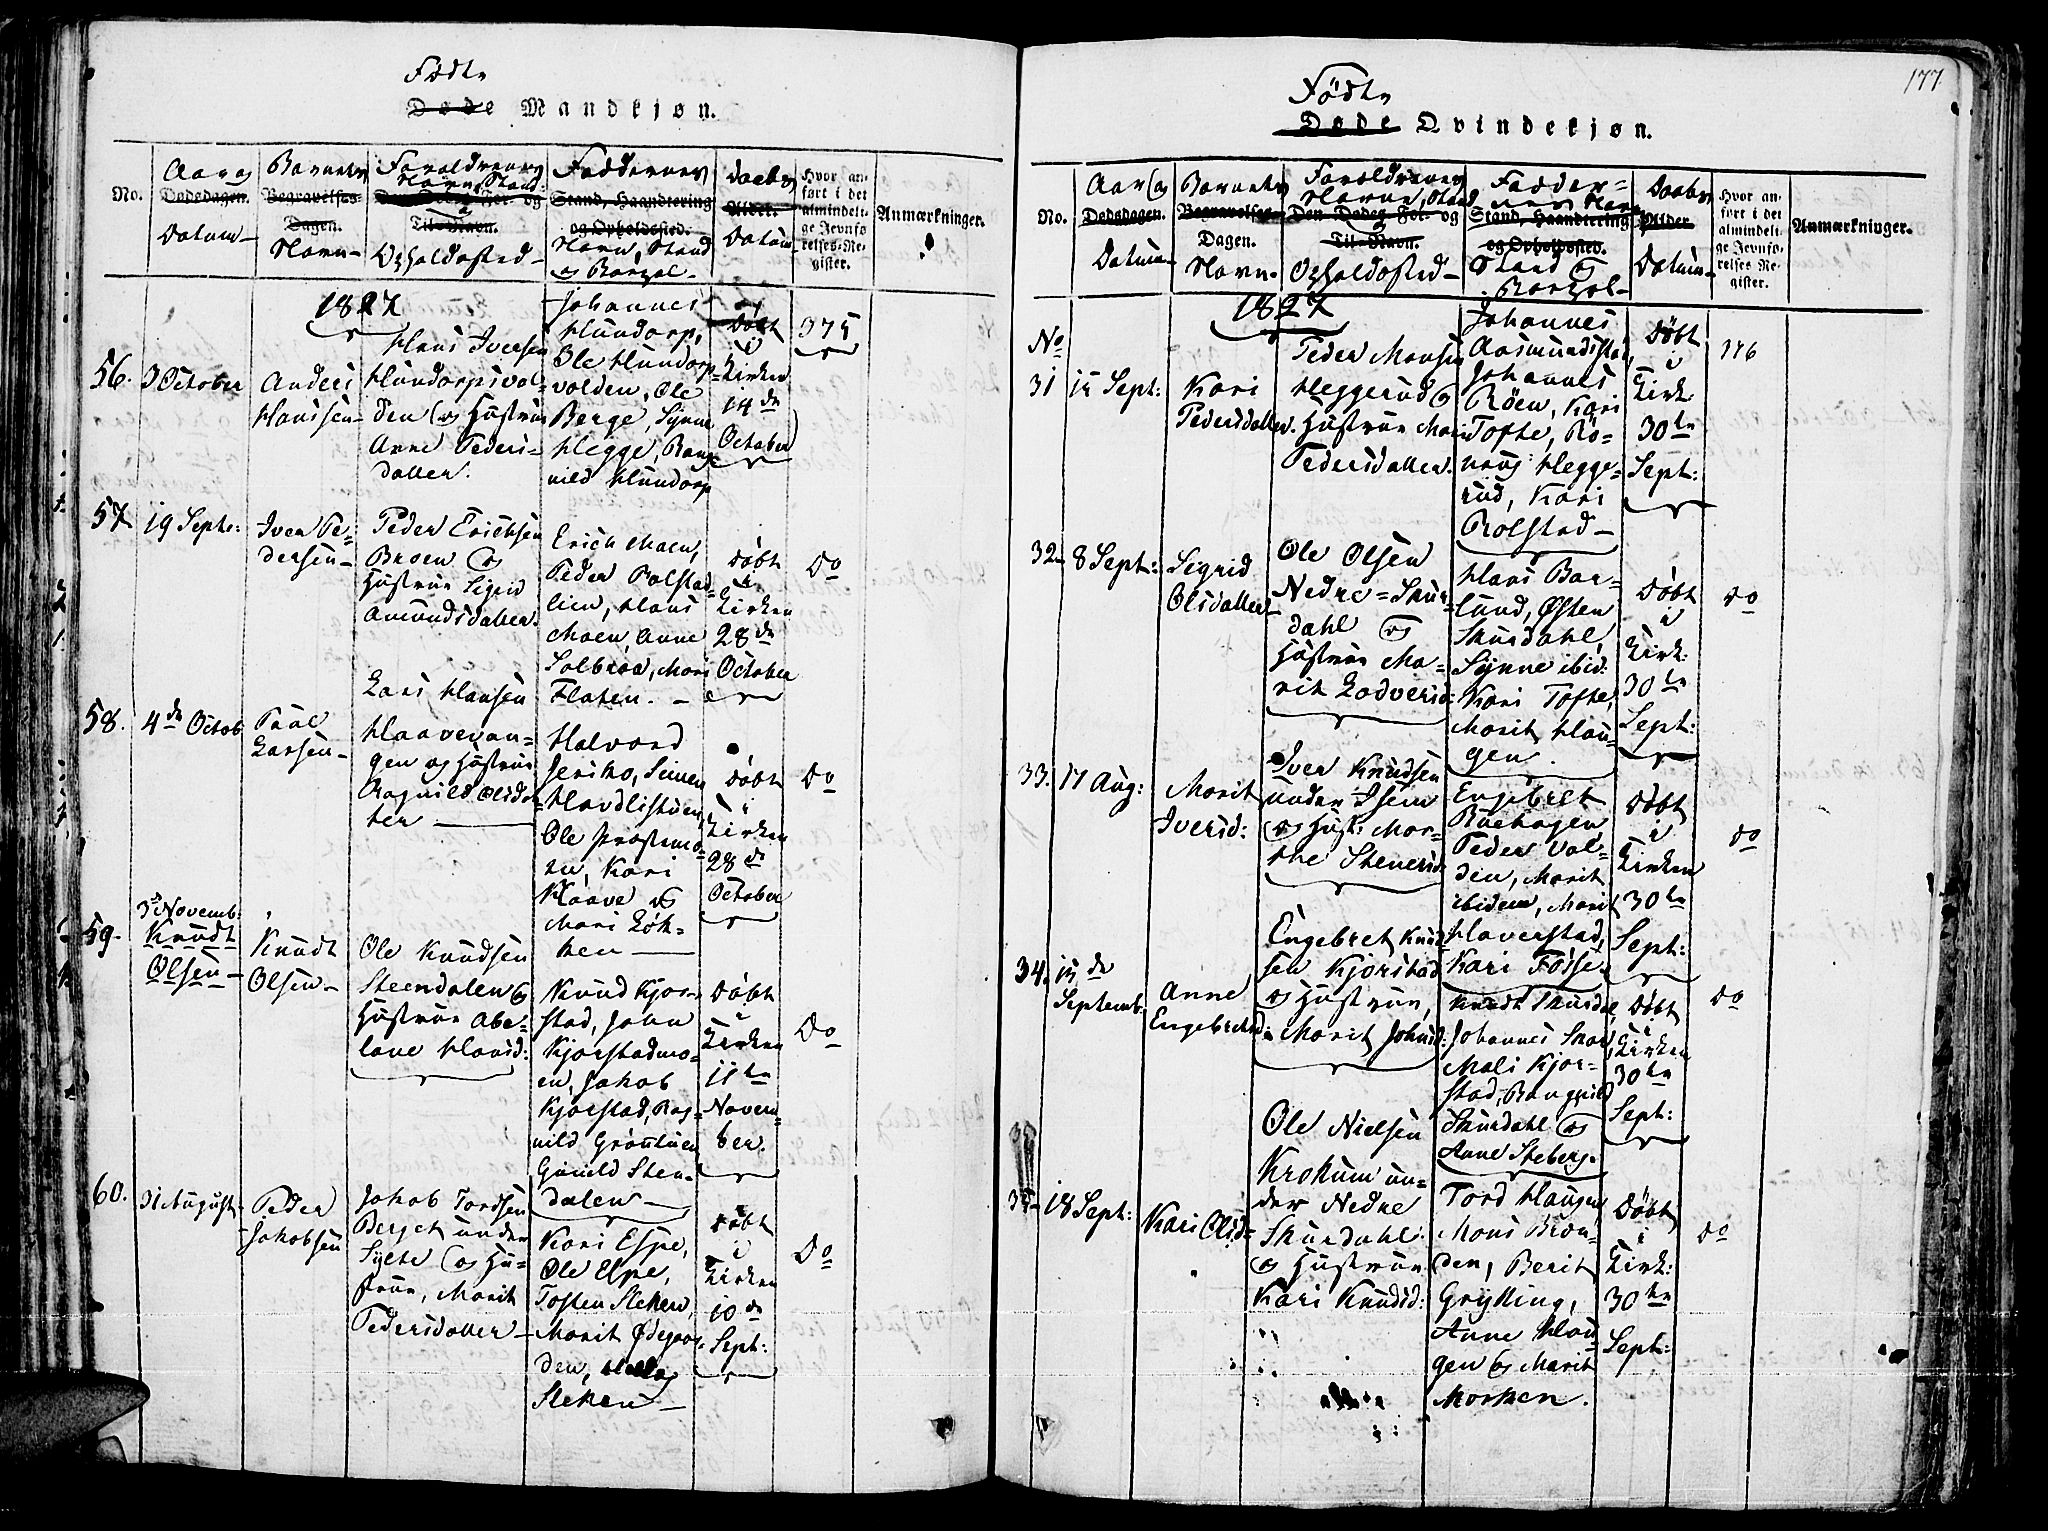 Født
Døde Mandkjøn.
No.
Aar og
Dødsdagen.
Datum
Barnets
Begravelses-
Dagen.
Navn
Forældrenes
Navn, Stand
og
Til-Navn.
Opholdssted
Faddernes
Stand, Haandtering
og Opholdssted.
Navn, Stand
og
Daabs
Alder.
Datum
Hvor an-
ført i det
almindeli-
ge Jevnfø-
relses-Re-
gister.
Anmærkninger.
1827
56.
3 October
Anders
Hanssen
Hans Iversen
Hundorpsvol-
den og Hustrue
Anne Peders-
datter.
Johannes
Hundorp,
Ole Hundorp-
volden, Ole
Berge, Synne
Hegge, Rang-
nild Hundorp
Døbt
i
Kirken
14de
October
375
57
19 Septr:
Iver Pe-
dersen
Peder Erichsen
Broen og
Hustrue Sigrid
Amundsdatter.
Erich Moen,
Peder Rolstad-
lien, Hans
Moen, Anne
Solbraa, Mari
Flaten.
Døbt
i
Kirken
28de
October
Do
58.
4de Octob
Poul
Larsen
Lars Hansen
Haavevan-
gen og Hustrue
Ragnild Olsdat-
ter
Halvord
Jeriko, Simen
Ole Prestmo-
en, Kari
Haave og
Mari Løk-
ken
Døbt
i
Kirken
28de
October
Do
59.
3de Novemb:
Knudt
Olsen
Knudt
Olsen
Ole Knudsen
Steendalen og
Hustrue Abe-
lone Hansd:
Knud Kjor-
stad, John
Kjorstadmo-
en, Jakob
Kjorstad, Rag-
nild Grøntuen
Gunild Sten-
dalen
Døbt
i
Kirken
11te
Novem-
ber.
Do
60.
31 August
Peder
Jakobsen
Jakob Tordsen
Berget under
Sylte og Hu-
strue, Marit
Pedersdatter
Kari Espe,
Ole Espe,
Tosten Sleken,
Marit Ødegaar-
den,
Sleken
Døbt
i
Kirken
10de
Sept:
Do
177
Født
Døde Qvindekjøn.
No.
Aar og
Dødsdagen.
Datum
Barnets
Begravelses-
Dagen.
Navn
Forældrenes
Navn, Stand
Den Dødes For- og
Til-Navn.
Opholdssted
Fadder-
nes Navn
Stand, Haandtering
og Opholdssted.
Stand og
Daabs
Alder
Datum
Hvor an-
ført i det
almindeli-
ge Jevnfø-
relses-Re-
gister.
Anmærkninger.
1827
No
31
Sept:
Kari
Pedersdatter.
Peder Monsen
Heggerud og
Hustrue Mari
Pedersdatter.
Johannes
Aasmundstad,
Johannes
Røen, Kari
Tofte, Rø-
nnaug Hegge-
rud, Kari
Rolstad
Døbt
i
Kirk
30te
Sept:
376
32
8 Sept:
Sigrid
Olsdatter
Ole Olsen
Nedre-Skur-
dahl og
Hustrue Ma-
rit Lodversd:
Hans Bar-
lund, Østen
Skurdahl,
Synne ibid:
Kari Tofte,
Marit Hau-
gen.
Døbt
i
Kirk:
30te
Sept:
do
33.
17 Aug:
Marit
Iversd:
Iver Knudsen
under Isum
og Hust: Mar-
the Stenersd:
Engebret
Ruehagen,
Peder Vol-
den, Marit
ibidem, Marit
Haverstad,
Kari Fosse.
Døbt
i
Kirken
30te
Sept:
do
34.
de
Septemb:
Anne
Engebretsd:
Engebret Knud-
sen Kjorstad
og Hustrue,
Marit Johnsd:
Knudt Skurdal,
Johannes Skar
Mali Kjor-
stad, Rangnild
Skurdahl og
Anne Steberg.
Døbt
i
Kirken
30te
Sept:
do
35
18 Sept:
Kari Olsd:
Ole Nielsen
Krokum un-
der Nedre
Skurdahl
og Hustrue
Kari Knudsd:
Tord Haugen,
Mons Brøn-
den, Berit
Grytting,
Anne Hau-
gen og Marit
Morken.
Døbt
i
Kirk:
30te
Sept:
do